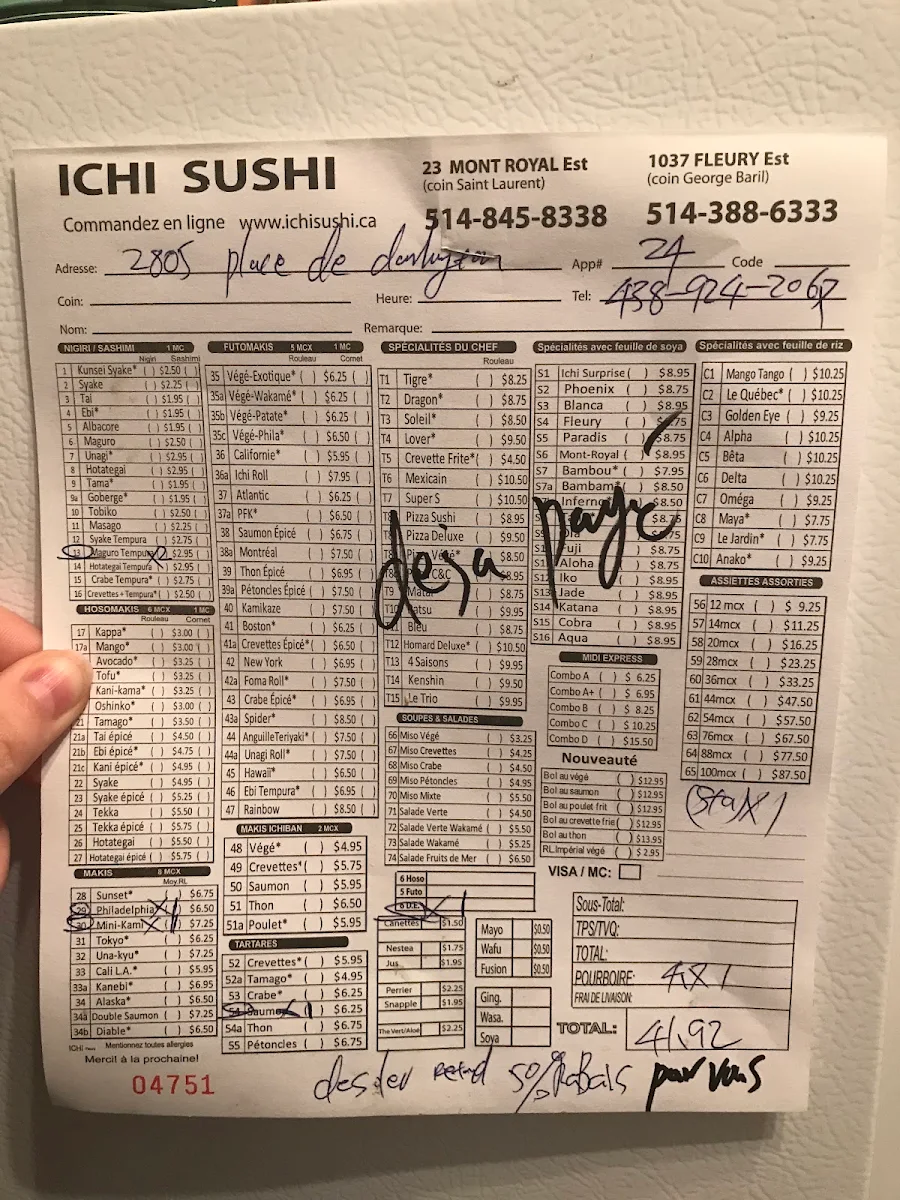 ICHI SUSHI
23 MONT ROYAL Est
(coin Saint Laurent)
514-845-8338
1037 FLEURY Est
(coin George Baril)
514-388-6333
Commandez en ligne www.ichisushi.ca
Adresse: 2805 place de
App# 24 Code
Coin: Heure: Tel: 438-924-2067
Nom: Remarque:
NIGIRI / SASHIMI 1 MC
Nigiri Sashimi
1 Kunsei Syake* ( ) $2.50 ( )
2 Syake ( ) $2.25 ( )
3 Tai ( ) $1.95 ( )
4 Ebi* ( ) $1.95 ( )
5 Albacore ( ) $1.95 ( )
6 Maguro ( ) $2.50 ( )
7 Unagi* ( ) $2.95 ( )
8 Hotategai ( ) $2.95 ( )
9 Tama* ( ) $1.95 ( )
9a Goberge* ( ) $1.95 ( )
10 Tobiko ( ) $2.50 ( )
11 Masago ( ) $2.25 ( )
12 Syake Tempura ( ) $2.75 ( )
13 Maguro Tempura ( ) $2.95 ( )
14 Hotategai Tempura ( ) $2.95 ( )
15 Crabe Tempura* ( ) $2.75 ( )
16 Crevettes Tempura* ( ) $2.50 ( )
HOSOMAKIS 6 MCX 1 MC
Rouleau Cornet
17 Kappa* ( ) $3.00 ( )
17a Mango* ( ) $3.00 ( )
Avocado* ( ) $3.25 ( )
Tofu* ( ) $3.25 ( )
Kani-kama* ( ) $3.25 ( )
Oshinko* ( ) $3.00 ( )
21 Tamago* ( ) $3.50 ( )
21a Tai épicé ( ) $4.50 ( )
21b Ebi épicé* ( ) $4.75 ( )
21c Kani épicé* ( ) $4.95 ( )
22 Syake ( ) $4.95 ( )
23 Syake épicé ( ) $5.25 ( )
24 Tekka ( ) $5.50 ( )
25 Tekka épicé ( ) $5.75 ( )
26 Hotategai ( ) $5.50 ( )
27 Hotategai épicé ( ) $5.75 ( )
MAKIS 8 MCX
Moy.RL
28 Sunset* ( ) $6.75
29 Philadelphia X1 $6.50
30 Mini-Kami X1 $7.25
31 Tokyo* ( ) $6.25
32 Una-kyu* ( ) $7.25
33 Cali L.A.* ( ) $5.95
33a Kanebi* ( ) $6.95
34 Alaska* ( ) $6.50
34a Double Saumon ( ) $7.25
34b Diable* ( ) $6.50
FUTOMAKIS 5 MCX 1 MC
Rouleau Cornet
35 Végé-Exotique* ( ) $6.25 ( )
35a Végé-Wakamé* ( ) $6.25 ( )
35b Végé-Patate* ( ) $6.25 ( )
35c Végé-Phila* ( ) $6.50 ( )
36 Californie* ( ) $5.95 ( )
36a Ichi Roll ( ) $7.95 ( )
37 Atlantic ( ) $6.25 ( )
37a PFK* ( ) $6.50 ( )
38 Saumon Épicé ( ) $6.75 ( )
38a Montréal ( ) $7.50 ( )
39 Thon Épicé ( ) $6.95 ( )
39a Pétoncles Épicé ( ) $7.50 ( )
40 Kamikaze ( ) $7.50 ( )
41 Boston* ( ) $6.25 ( )
41a Crevettes Épicé* ( ) $6.50 ( )
42 New York ( ) $6.95 ( )
42a Foma Roll* ( ) $7.50 ( )
43 Crabe Épicé* ( ) $6.95 ( )
43a Spider* ( ) $8.50 ( )
44 AnguilleTeriyaki* ( ) $7.50 ( )
44a Unagi Roll* ( ) $7.50 ( )
45 Hawaii* ( ) $6.50 ( )
46 Ebi Tempura* ( ) $6.95 ( )
47 Rainbow ( ) $8.50 ( )
MAKIS ICHIBAN 2 MCX
48 Végé* ( ) $4.95
49 Crevettes* ( ) $5.75
50 Saumon ( ) $5.95
51 Thon ( ) $6.50
51a Poulet* ( ) $5.95
TARTARES
52 Crevettes* ( ) $5.95
52a Tamago* ( ) $4.95
53 Crabe* ( ) $6.25
54 Saumon X1 $6.25
54a Thon ( ) $6.75
55 Pétoncles ( ) $6.75
SPÉCIALITÉS DU CHEF
Rouleau
T1 Tigre* ( ) $8.25
T2 Dragon* ( ) $8.75
T3 Soleil* ( ) $8.50
T4 Lover* ( ) $9.50
T5 Crevette Frite* ( ) $4.50
T6 Mexicain ( ) $10.50
T7 Super S ( ) $10.50
T8 Pizza Sushi ( ) $8.95
Pizza Deluxe ( ) $9.50
Pizza Végé* ( ) $8.50
C&C $8.95
T9 ( ) $8.75
T10 ( ) $9.95
Bleu ( ) $8.75
T12 Homard Deluxe* ( ) $10.50
T13 4 Saisons ( ) $9.95
T14 Kenshin ( ) $9.50
T15 Le Trio ( ) $9.95
SOUPES & SALADES
66 Miso Végé ( ) $3.25
67 Miso Crevettes ( ) $4.25
68 Miso Crabe ( ) $4.50
69 Miso Pétoncles ( ) $4.95
70 Miso Mixte ( ) $5.50
71 Salade Verte ( ) $4.50
72 Salade Verte Wakamé ( ) $5.50
73 Salade Wakamé ( ) $5.25
74 Salade Fruits de Mer ( ) $6.50
6 Hoso
5 Futo
6 D.E. X1
Canettes $1.50
Nestea $1.75
Jus $1.95
Perrier $2.25
Snapple $1.95
The Vert/Aloé $2.25
Mayo $0.50
Wafu $0.50
Fusion $0.50
Ging.
Wasa.
Soya
Spécialités avec feuille de soya
S1 Ichi Surprise ( ) $8.95
S2 Phoenix ( ) $8.75
S3 Blanca ( ) $8.95
S4 Fleury ( ) $8.75
S5 Paradis ( ) $8.75
S6 Mont-Royal ( ) $8.95
S7 Bambou* ( ) $7.95
S7a Bambam* ( ) $8.50
Inferno* $8.50
$8.75
$8.75
Fuji ( ) $8.75
Aloha ( ) $8.75
Iko ( ) $8.95
S13 Jade ( ) $8.95
S14 Katana ( ) $8.95
S15 Cobra ( ) $8.95
S16 Aqua ( ) $8.95
déjà payé
MIDI EXPRESS
Combo A ( ) $ 6.25
Combo A+ ( ) $ 6.95
Combo B ( ) $ 8.25
Combo C ( ) $ 10.25
Combo D ( ) $15.50
Nouveauté
Bol au végé ( ) $12.95
Bol au saumon ( ) $12.95
Bol au poulet frit ( ) $12.95
Bol au crevette frie ( ) $12.95
Bol au thon ( ) $13.95
RL.Impérial végé ( ) $ 2.95
VISA / MC:
Spécialités avec feuille de riz
C1 Mango Tango ( ) $10.25
C2 Le Québec* ( ) $10.25
C3 Golden Eye ( ) $9.25
C4 Alpha ( ) $10.25
C5 Bêta ( ) $10.25
C6 Delta ( ) $10.25
C7 Oméga ( ) $9.25
C8 Maya* ( ) $7.75
C9 Le Jardin* ( ) $7.75
C10 Anako* ( ) $9.25
ASSIETTES ASSORTIES
56 12 mcx ( ) $ 9.25
57 14mcx ( ) $11.25
58 20mcx ( ) $16.25
59 28mcx ( ) $23.25
60 36mcx ( ) $33.25
61 44mcx ( ) $47.50
62 54mcx ( ) $57.50
63 76mcx ( ) $67.50
64 88mcx ( ) $77.50
65 100mcx ( ) $87.50
Sous-Total:
TPS/TVQ:
TOTAL:
POURBOIRE: 4X1
FRAI DE LIVRAISON:
TOTAL: 41,92
Mentionnez toutes allergies
Mercil à la prochaine!
04751
50% Rabais pour vous